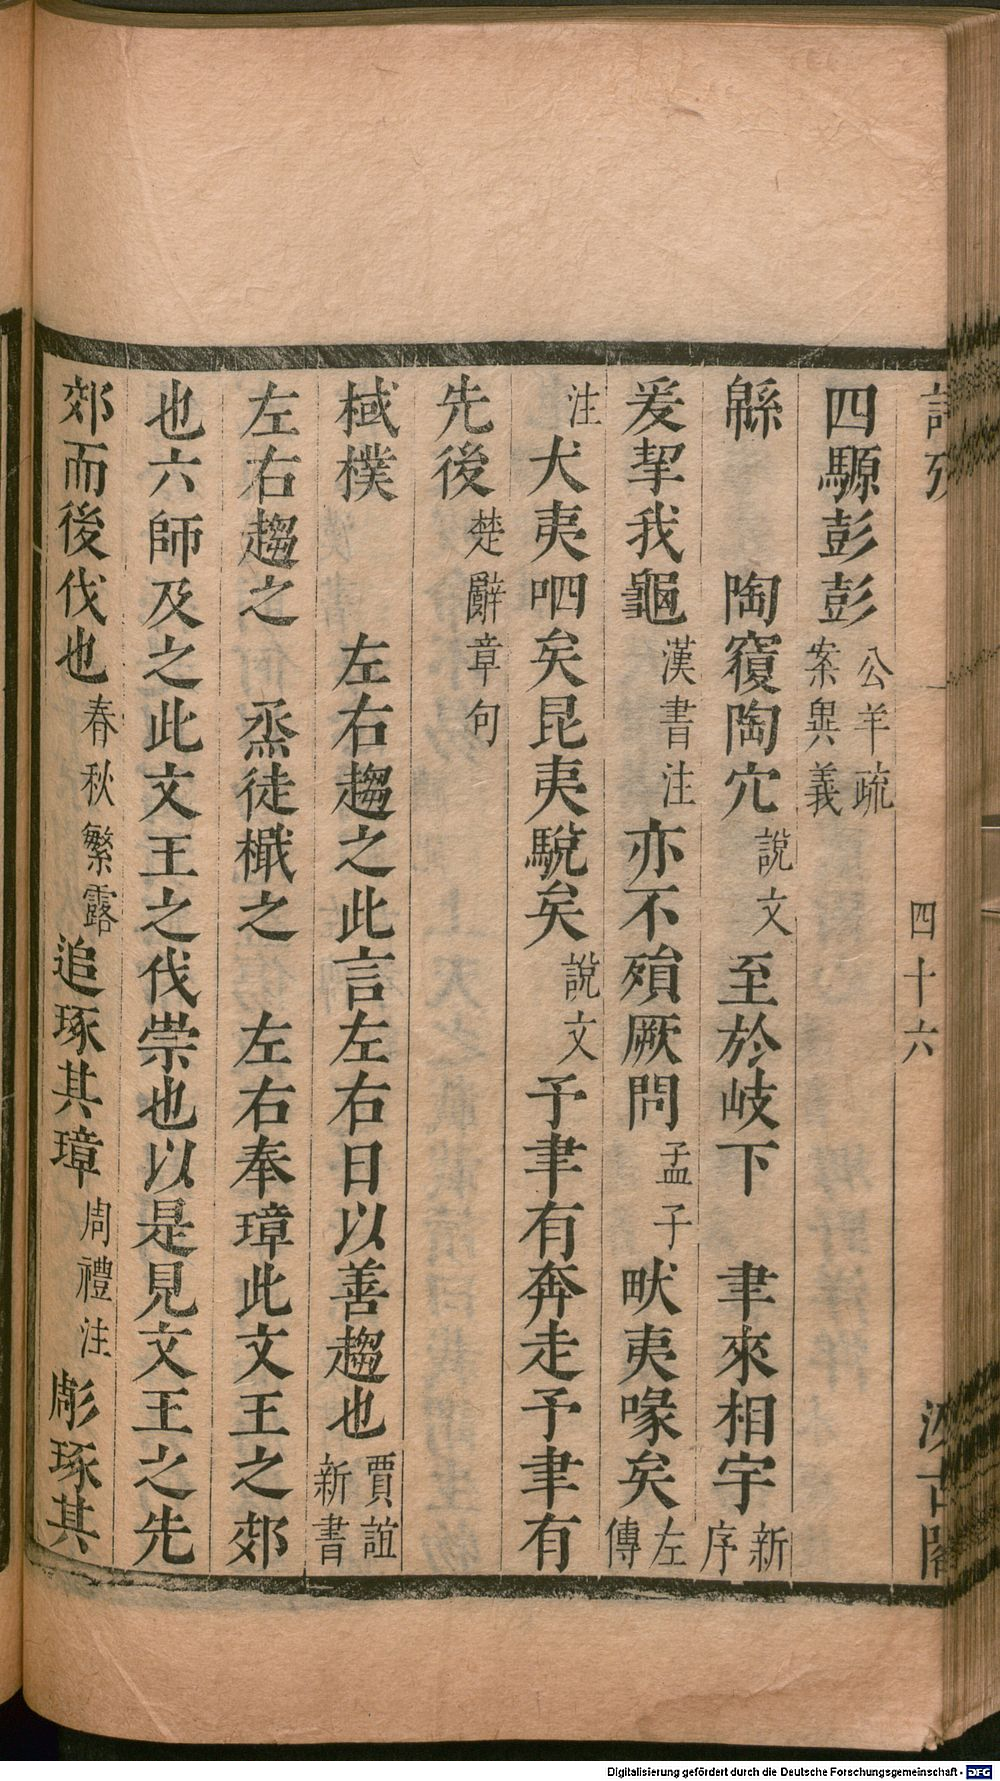 四十六
四騵彭彭公羊疏案異義
緜　陶𥨍陶穴說文至於岐下　聿來相宇新序
爰挈我龜漢書注亦不殞厥問孟子畎夷喙矣左傳
注犬夷呬矣昆夷駾矣說文予聿有奔走予聿有
先後楚辭章句
棫樸　左右趨之此言左右日以善趨也賈誼新書
左右趨之　烝徒檝之　左右奉璋此文王之郊
也六師及之此文王之伐崇也以是見文王之先
郊而後伐也春秋繁露追琢其璋周禮注彫琢其
Digitalisierung gefördert durch die Deutsche Forschungsgemeinschaft - DFG